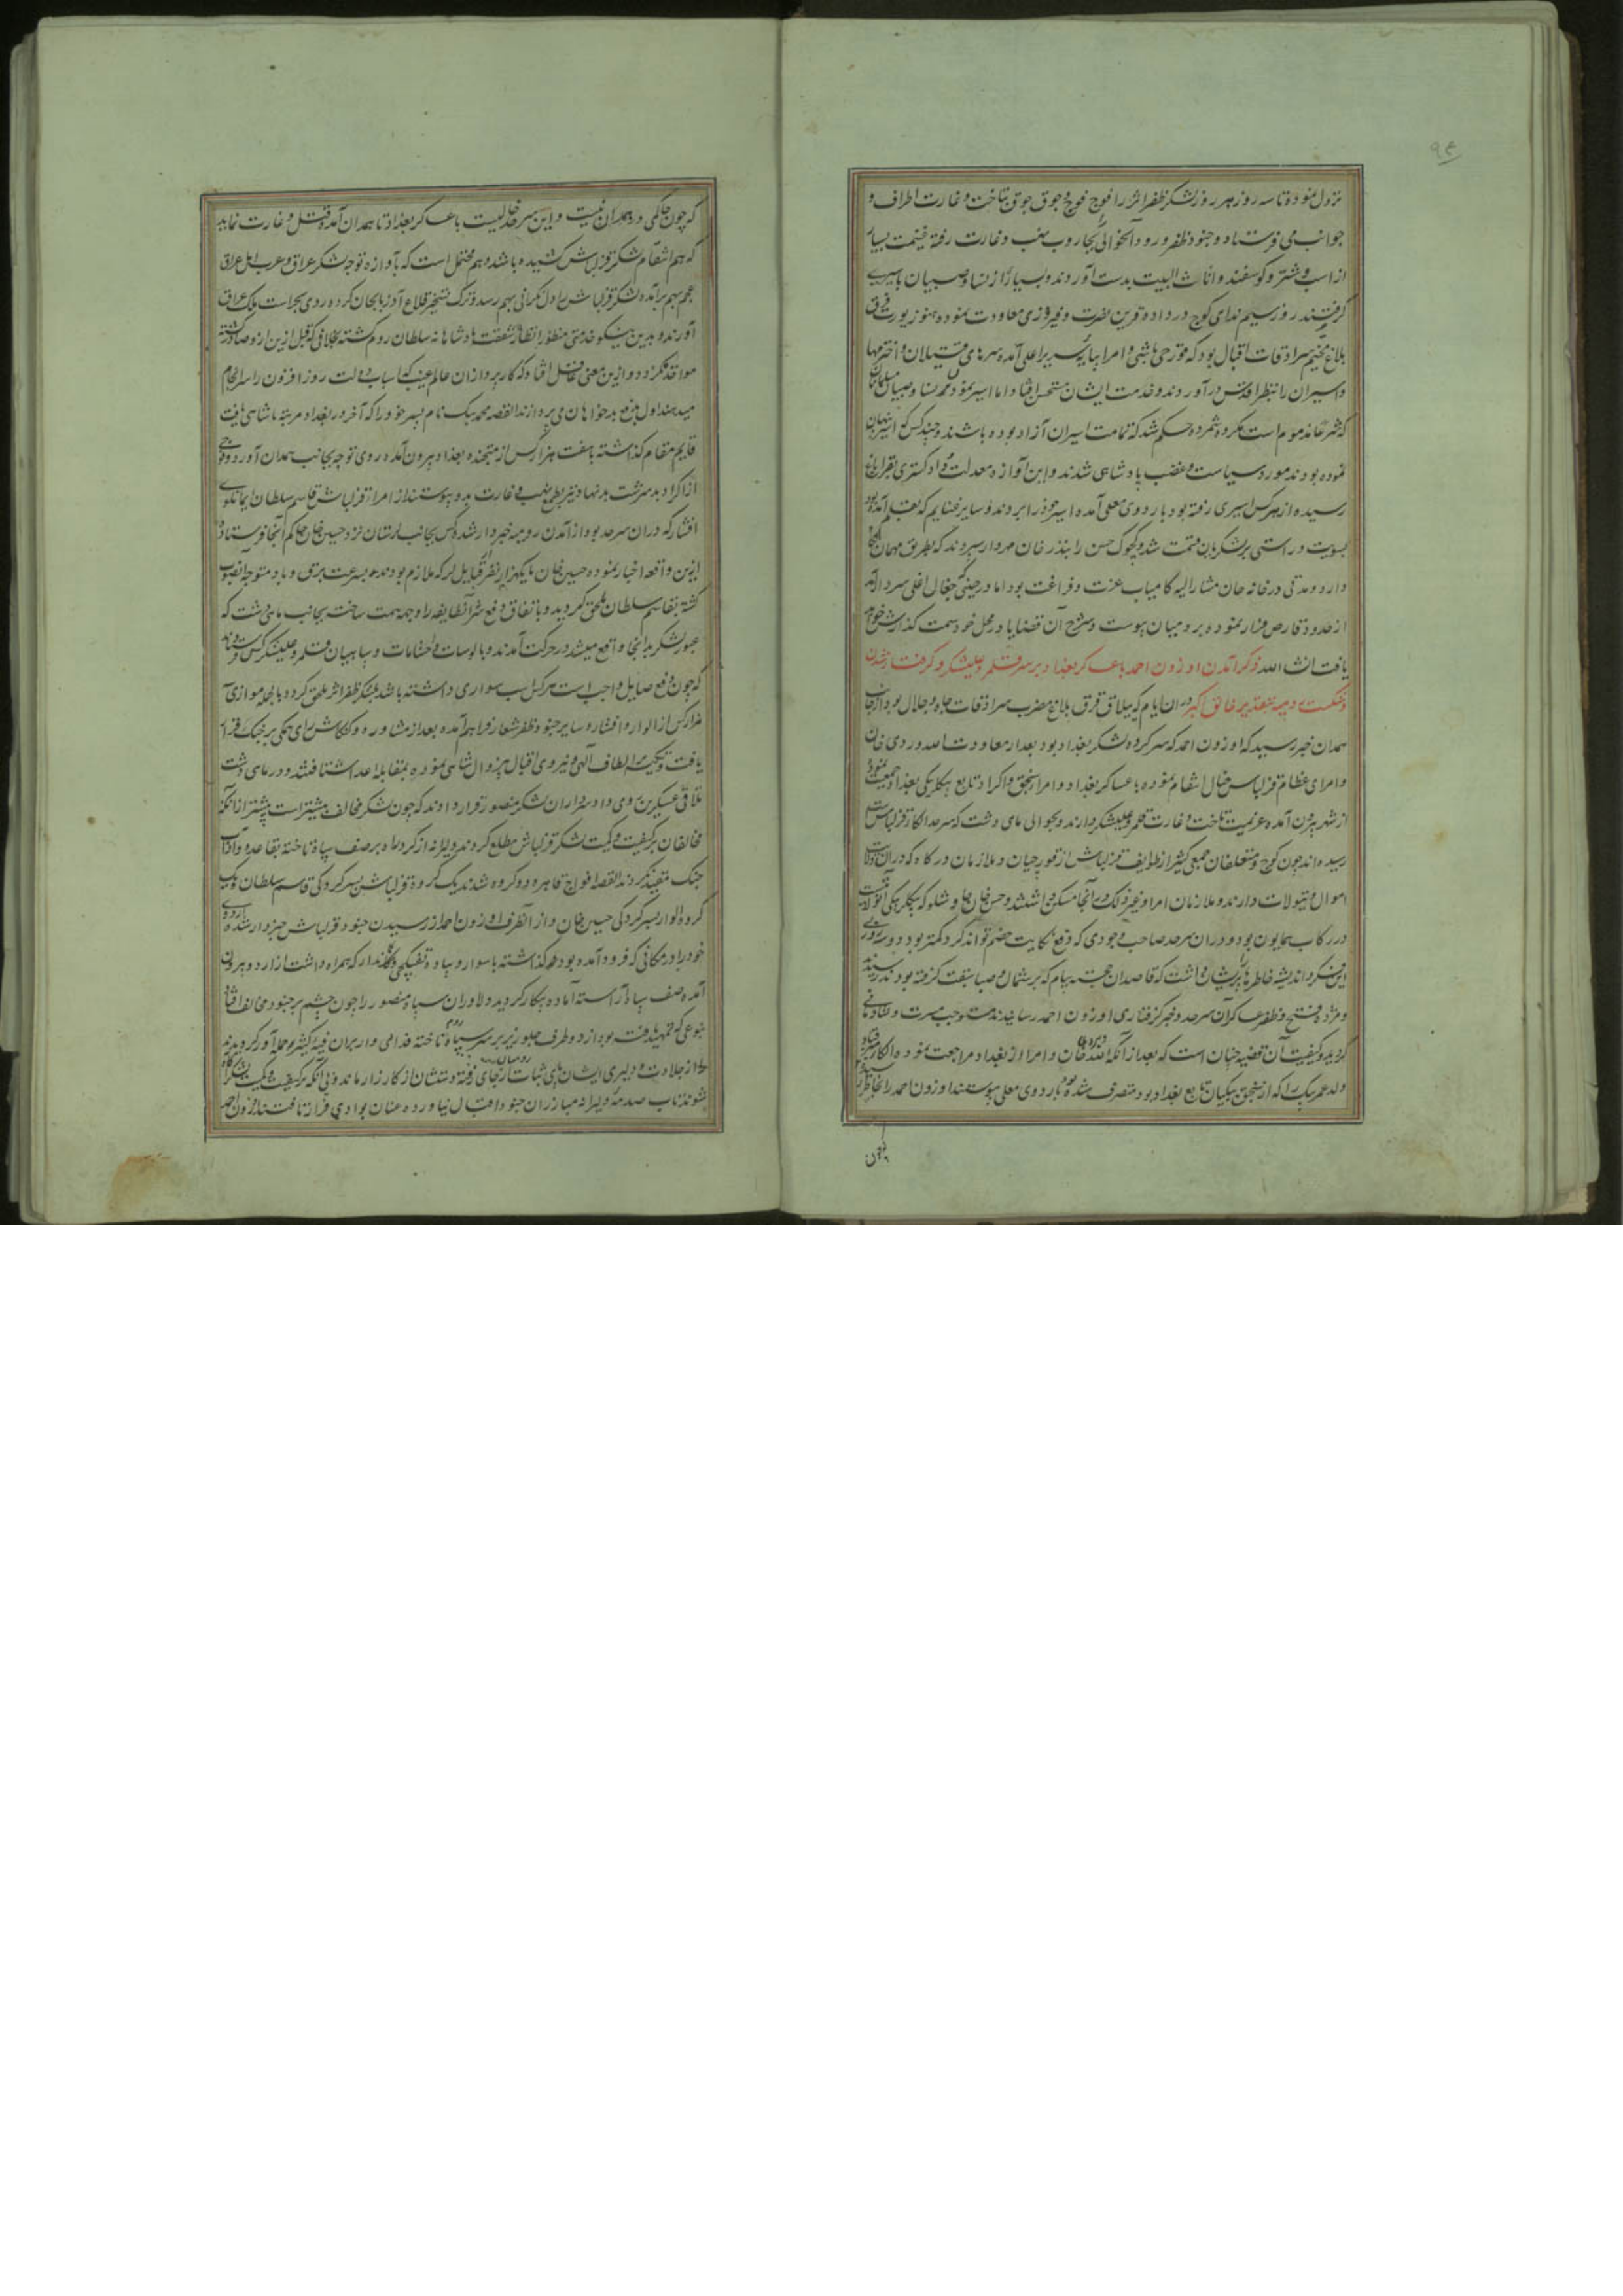 نزول نموده تا سه روز هر روز لشکر ظفر اثر را فوج فوج و جوق جوق بتاخت و غارت اطراف و
جوانب می فرستاد و جنود ظفر ورود آن حوالی بجاروب نهب و غارت رفته غنیمت بسیار
از اسب و شتر و کوسفند و اثاث البیت بدست آوردند و بسیار از نسا و صبیان باسیری
کرفتند روز سیم ندای کوچ در داده قرین نصرت و فیروزی معاودت نموده هنوز یورت قرق
بلاغ مخیم سرادقات اقبال بود که قورچی باشی و امرا بپایه سریر اعلی آمده سرهای قتیلان و اخترمها
و اسیران را بنظر اقدس در آوردند و خدمت ایشان مستحسن افتاد اما اسیر نمودن نسا و صبیان مسلمانان
که شرعا مذموم است مکروه شمرده حکم شد که تمامت اسیران آزاد بوده باشند و چند کس که اسیر پنهان
نموده بودند مورد سیاست و غضب پادشاهی شدند و این آوازه معدلت و دادکستری بقراباغ
رسیده از هر کس اسیری رفته بود باردوی معلی آمده اسیر خود را بردند و سایر غنایم که بقلم آمده بود
بسویت و راستی بر لشکریان قسمت شد و کچوک حسن را بذر خان مهردار سپردند که بطریق مهمان نکاه
دارد و مدتی در خانه خان مشار الیه کامیاب عزت و فراغت بود اما در حینی که جغال اغلی سردار آمد
از حدود قارص فرار نموده برومیان پیوست و شرح آن قضایا در محل خود سمت کذارش خواهد
یافت انشاء الله ذکر آمدن اوزون احمد با عساکر بغداد بر سر قلمرو علیشکر و کرفتار شدن
و شکست رومیه بتقدیر خالق اکبر در ان ایام که ییلاق قرق بلاغ مضرب سرادقات جاه و جلال بود از جانب
همدان خبر رسید که اوزون احمد که سر کرده لشکر بغداد بود بعد از معاودت الله وردی خان
و امرای عظام قزلباش خیال انتقام نموده با عساکر بغداد و امرا سنجق و اکراد تابع بیکلربیکی بغداد جمعیت نموده
از شهر بیرون آمده عزیمت تاخت و غارت قلمرو علیشکر دارند و بحوالی ماهی دشت که سرحد الکا قزلباش است
رسیده اند چون کوچ و متعلقان جمعی کثیر از طوایف قزلباش از قورچیان و ملازمان درکاه که در ان ولایت
اموال و تیولات دارند و ملازمان امرا و غیر ذلک در آنجا مسکن داشتند و حسن خان استاجلو که بیکلربیکی آنولایت است
در رکاب همایون بود و در ان سرحد صاحب وجودی که دفع نکایت خصم تواند کرد کمتر بود دو سه روزی
این فکر و اندیشه خاطرها پریشان داشت که قاصدان خجسته پیام که بر شمال و صبا سبقت کرفته بودند رسیدند
و مژده فتح و ظفر عساکر آن سرحد و خبر کرفتاری اوزون احمد رسانیدند موجب مسرت و شادمانی
کردید و کیفیت آن قضیه چنان است که بعد از آنکه الله ویردی خان و امرا از بغداد مراجعت نموده الکا
ولد عمر بیک را که از سنجق بیکیان تابع بغداد بود متصرف شده بود باردوی معلی پیوستند اوزون احمد را بخاطر
که چون حاکمی در همدان نیست و این سرحد خالیست با عساکر بغداد تا همدان آمده قتل و غارت نماید
که هم انتقام لشکر قزلباش کشیده باشد و هم محتمل است که بآوازه توجه لشکر عراق و عرب اهل عراق
عجم بهم برآمده لشکر قزلباش را دل نکرانی بهم رسد و ترک تسخیر قلاع آذربایجان کرده روی بحراست ملک عراق
آورند و بدین نیکو خدمتی منظور انظار شفقت پادشاهانه سلطان روم کشته بخلافی که قبل ازین ازو صادر کشته
مواخذ نکردد و ازین معنی غافل افتاد که کار پردازان عالم غیب که اسباب دولت روز افزون را سرانجام
میدهند اول بدفع بدخواهان می پردازند القصه محمد بیک نام پسر خود را که آخر در بغداد مرتبه پاشایی یافت
قایم مقام کذاشته با هفت هزار کس از منتخبه بغداد بیرون آمده روی توجه بجانب همدان آورد و قومی
از اکراد بد سرشت بد نهاد نیز بطمع نهب و غارت بدو پیوستند از امرا قزلباش قاسم سلطان ایمانلوی
افشار که در ان سرحد بود از آمدن رومیه خبردار شده کس بجانب لرستان نزد حسین خان حاکم آنجا فرستاد و
ازین واقعه اخبار نموده حسین خان با یکهزار نفر قبایل لر که ملازم بودند بسرعت برق و باد متوجه آنصوب
کشته بقاسم سلطان ملحق کردید و باتفاق دفع شر آنطایفه را وجهه همت ساخته بجانب ماهی دشت که
عبور لشکر بدانجا واقع میشد در حرکت آمدند و بالوسات و احشامات و سپاهیان قلمرو علیشکر کس فرستادند
که چون دفع صایل واجب است هر کس اسب سواری داشته باشد بلشکر ظفر اثر ملحق کردد بالجمله موازی
هزار کس از الوار و افشار و سایر جنود ظفر شعار فراهم آمده بعد از مشاوره و کنکاش رای همکی بر جنک قرار
یافت و بتکیه الطاف الهی و نیروی اقبال بیزوال شاهی نموده بمقابله اعدا شتافتند و در ماهی دشت
تلاقی عسکرین روی داد سرداران لشکر منصور قرار دادند که چون لشکر مخالف بیشتر است پیشتر از آنکه
مخالفان بر کیفیت و کمیت لشکر قزلباش مطلع کردند دلیرانه از کرد راه بر صف سپاه تاخته بقاعده و آداب
جنک مقید نکردند القصه افواج قاهره دو کروه شدند یک کروه قزلباش بسر کردکی قاسم سلطان و یک
کروه الوار بسر کردکی حسین خان و از آنطرف اوزون احمد از رسیدن جنود قزلباش خبردار شده اردوی
خود را در مکانی که فرود آمده بود هم کذاشته با سوار و پیاده تفنکچی و کماندار که همراه داشت از اردو بیرون
آمده صف سپاه آراسته آماده پیکار کردید دلاوران سپاه منصور را چون چشم بر جنود مخالف افتاد
بنوعی که تمهید یافته بود از دو طرف جلو ریز بر سر سپاه روم تاخته فدائی وار بران فئه کثیره حمله آور کردیدند
از جلادت و دلیری ایشان پای ثبات رومیان از جای رفته دستشان از کارزار ماند و بی آنکه بر کیفیت و کمیت لشکر آگاه
شوند تاب صدمه دلیرانه مبارزان جنود اقبال نیاورده عنان بوادی فرار تافتند اوزون احمد